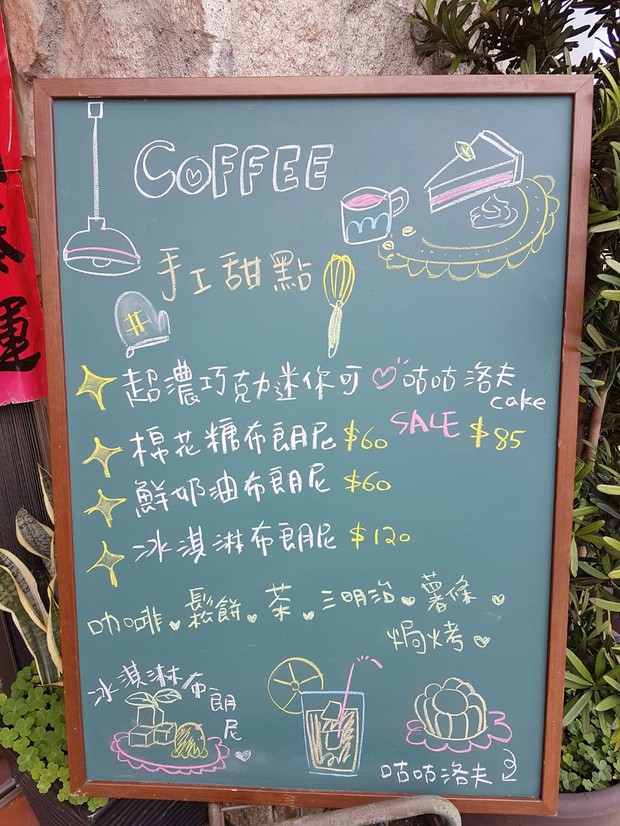 COFFEE
手工甜點
超濃巧克力迷你可♡咕咕洛夫
cake
SALE $85
棉花糖布朗尼 $60
鮮奶油布朗尼 $60
冰淇淋布朗尼 $120
咖啡。鬆餅。茶。三明治。薯條。
焗烤
冰淇淋布朗尼
咕咕洛夫
運